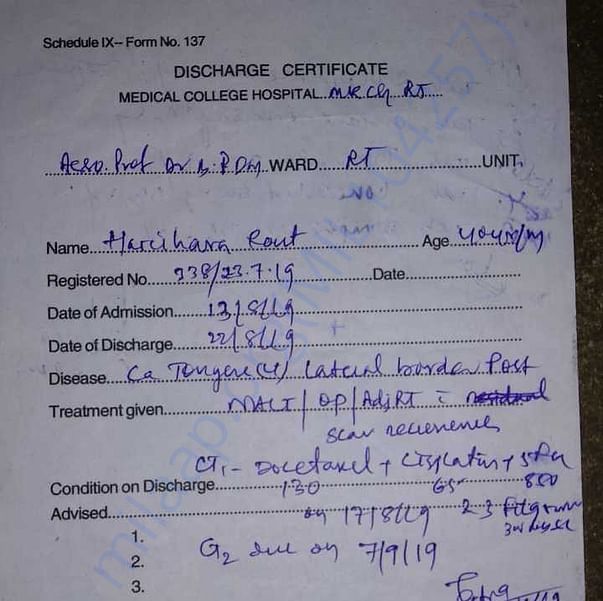 Schedule IX-- Form No. 137
DISCHARGE CERTIFICATE
MEDICAL COLLEGE HOSPITAL...MKCG RT
Asso. Prof Dr WARD RT UNIT
Name Harihara Rout Age 40yrs/m
Registered No. 238/23.7.19 Date
Date of Admission 13/8/19
Date of Discharge 22/8/19
Disease Ca Tongue (L) Lateral border Post
Treatment given NACT/OP/AdjRT
scar recurrence
CT1 - Docetaxel + Cisplatin + 5FU
Condition on Discharge 130 65 850
Advised on 17/8/19
1.
2. due on 7/9/19
3.